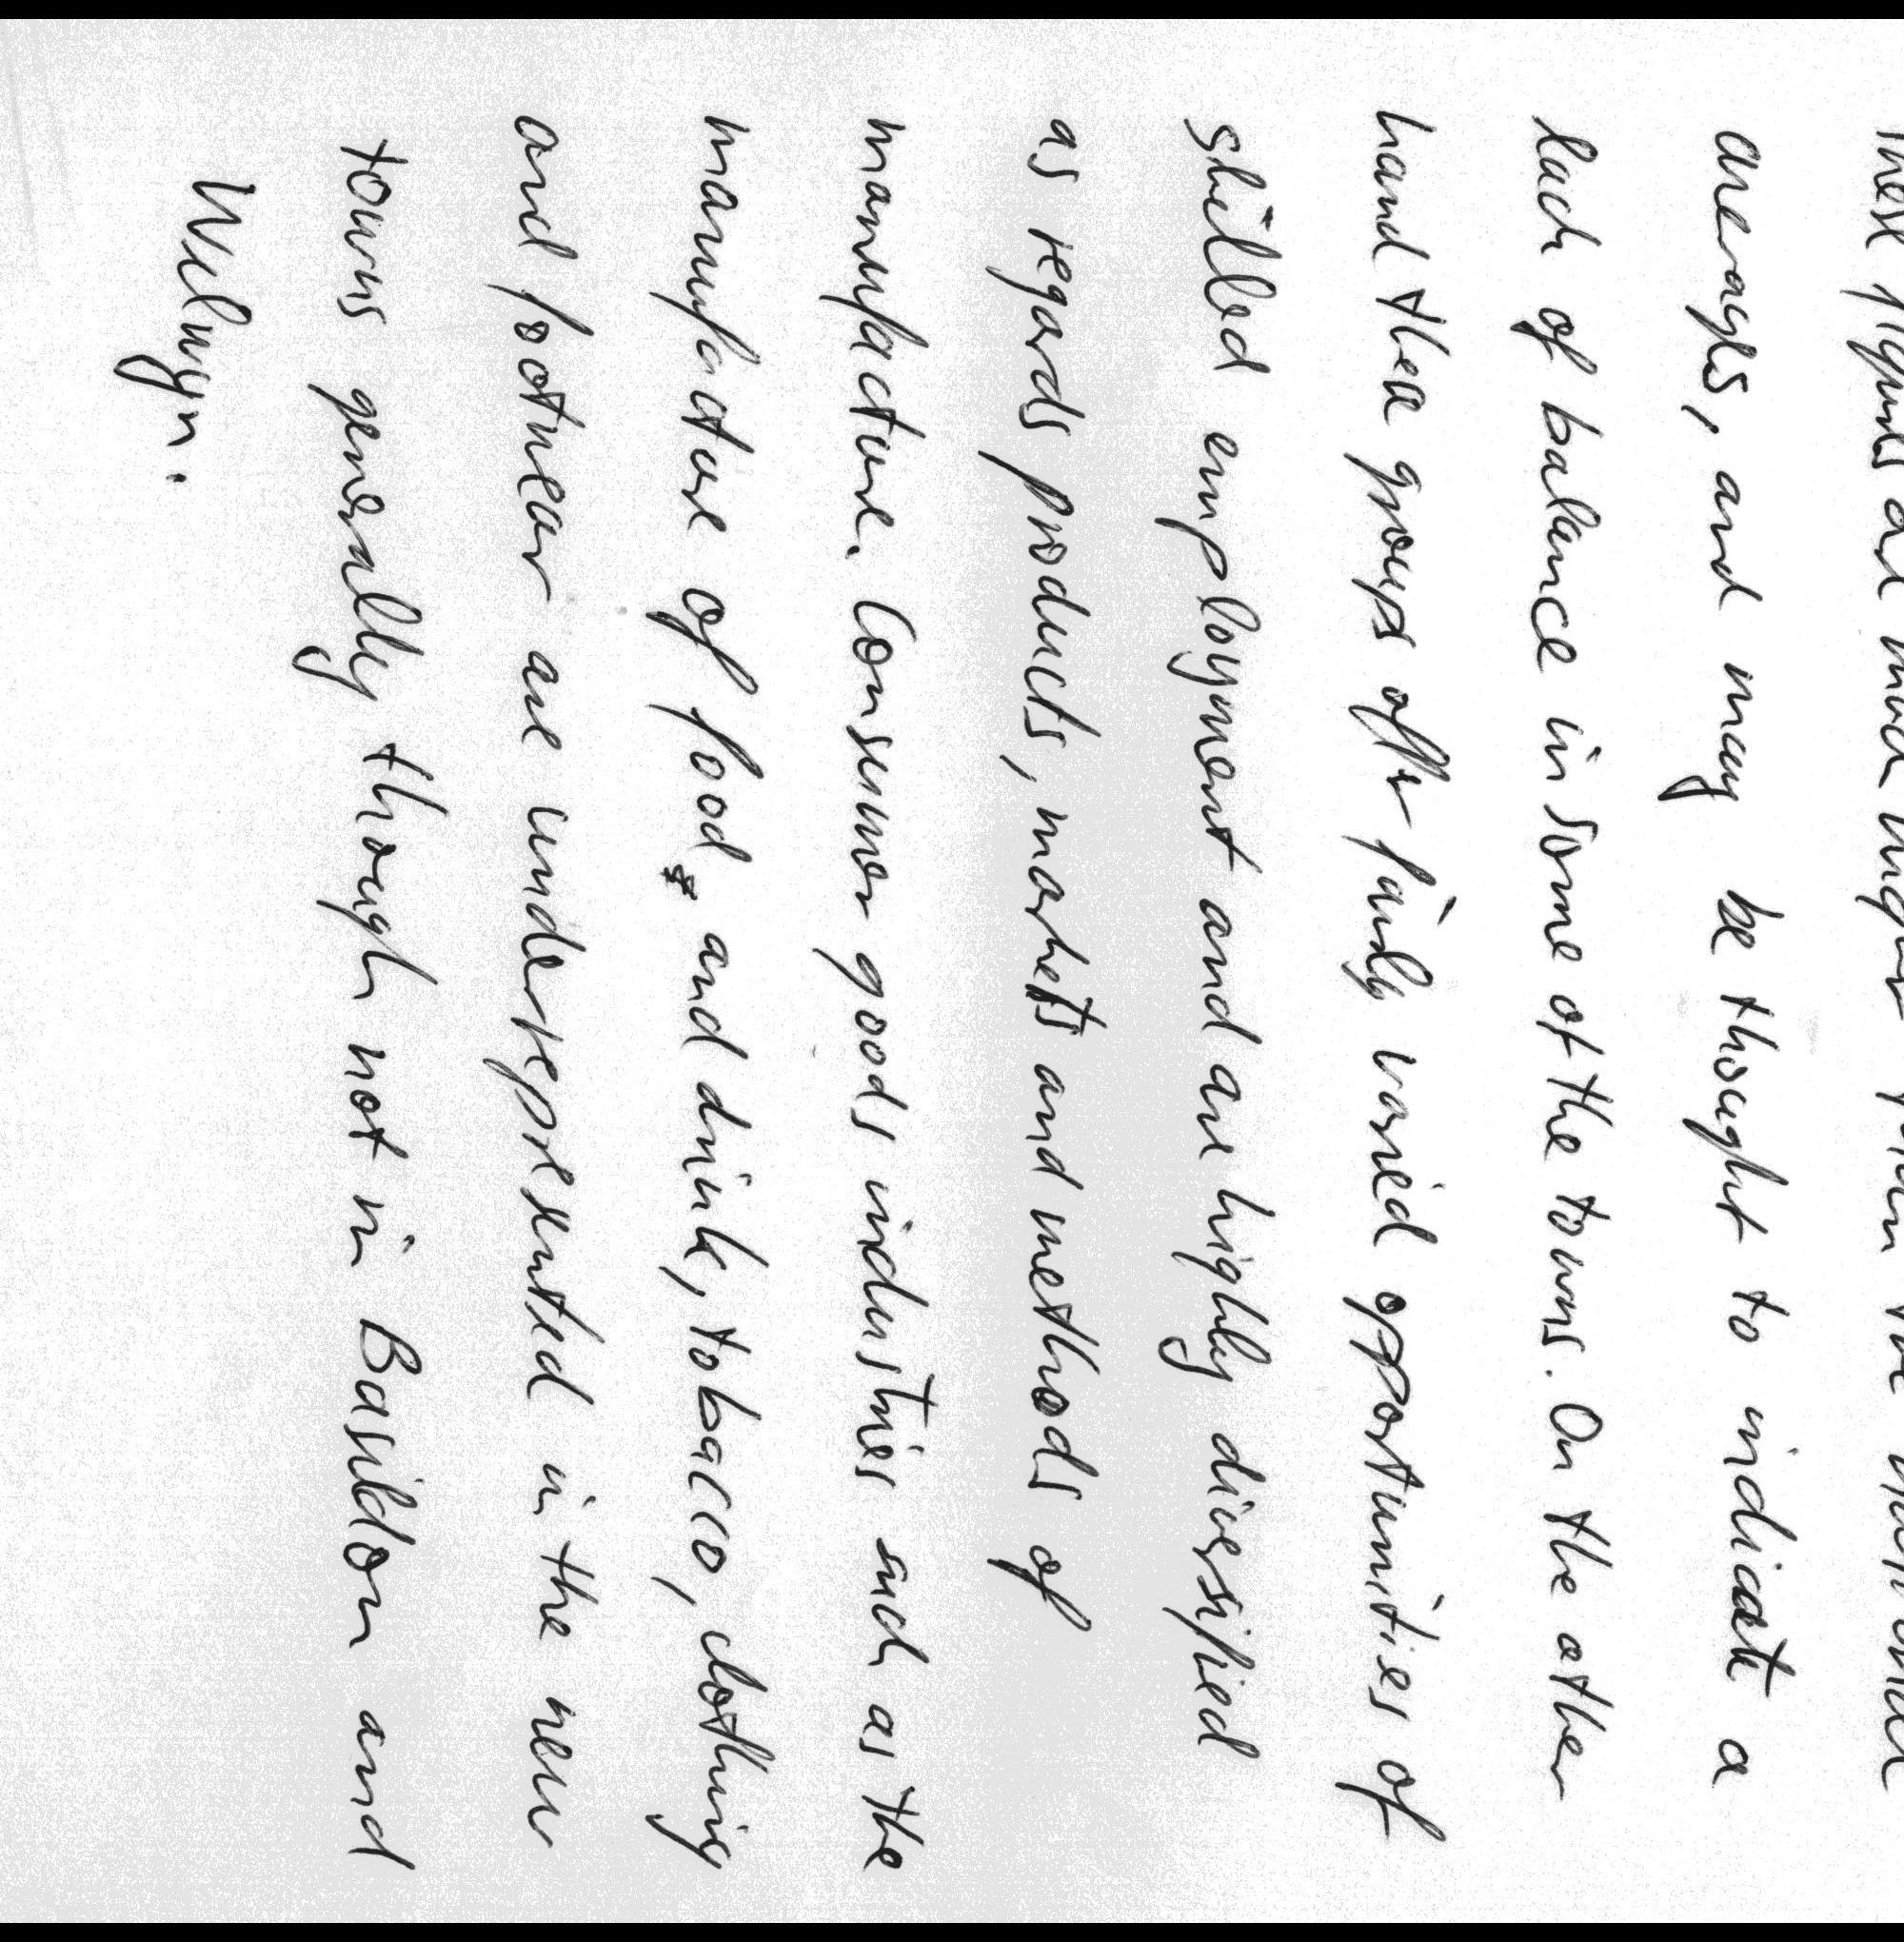 these figures are much higher than the national
averages, and may be thought to indicate a
lack of balance in some of the towns. On the other
hand these groups offer fairly varied opportunities of
skilled employment and are highly diversified
as regards products, markets and methods of
manufacture. Consumer goods industries such as the
manufacture of food and drink, tobacco, clothing
and footwear are underrepresented in the new
towns generally though not in Basildon and
Welwyn.